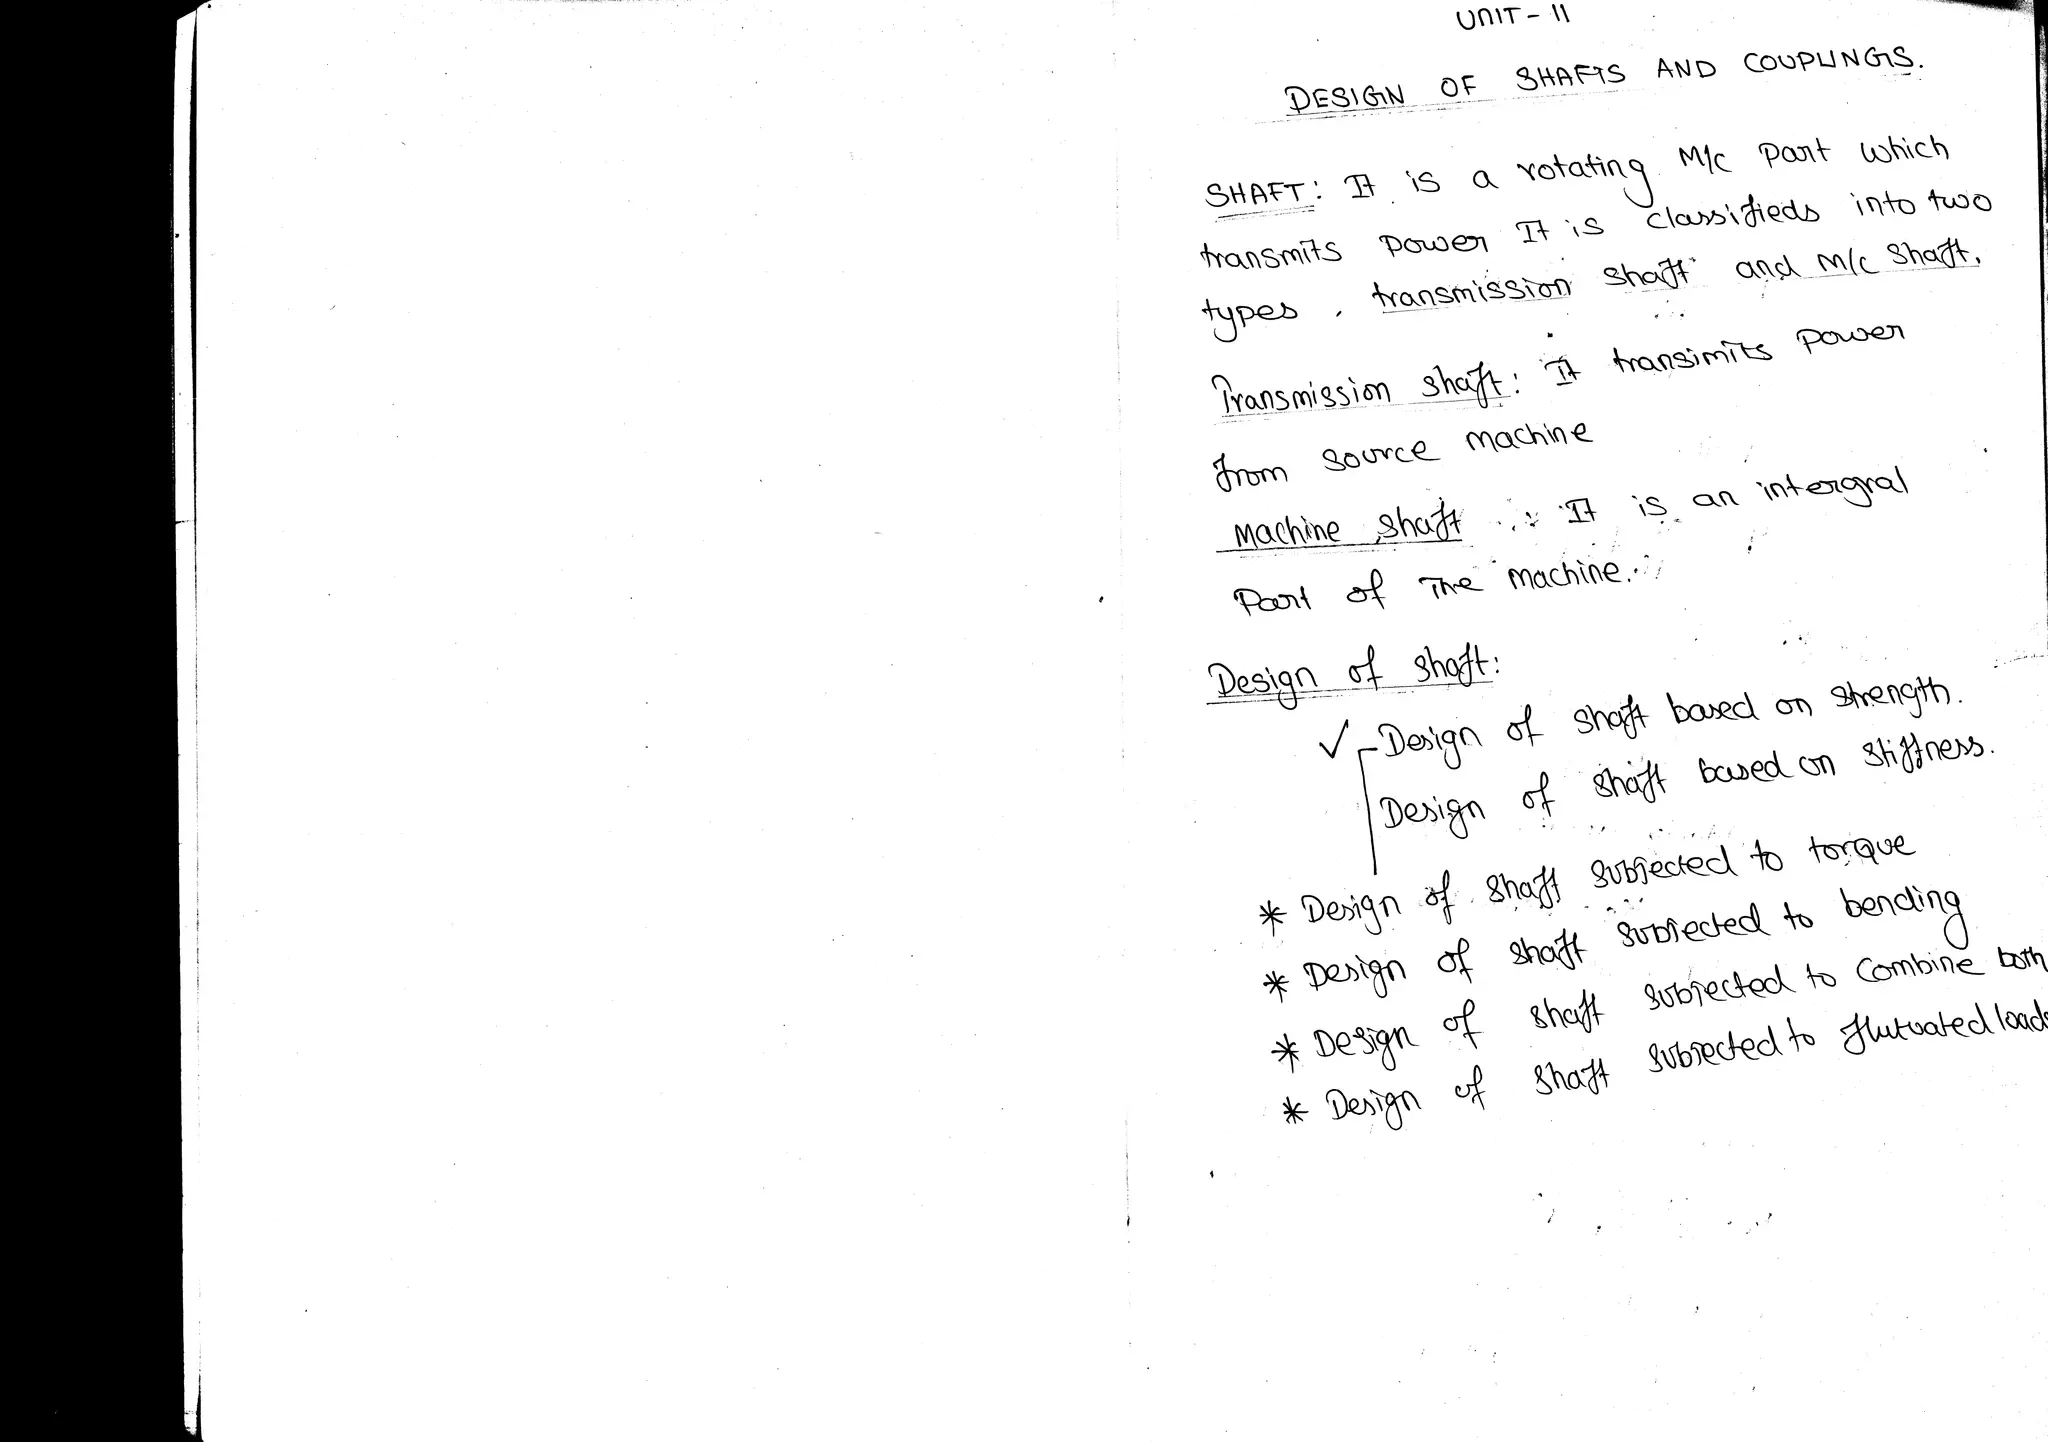 UNIT - 11
DESIGN OF SHAFTS AND COUPLINGS.
SHAFT: It is a rotating M/c part which
transmits power It is classifieds into two
types, transmission shaft and M/c shaft.
Transmission shaft: It transimits power
from source machine
Machine shaft : It is an intergral
Part of The machine.
Design of shaft:
✓ Design of shaft based on strength.
Design of shaft based on stiffness.
* Design of shaft subjected to torque
* Design of shaft subjected to bending
* Design of shaft subjected to combine both
* Design of shaft subjected to flutuated loads